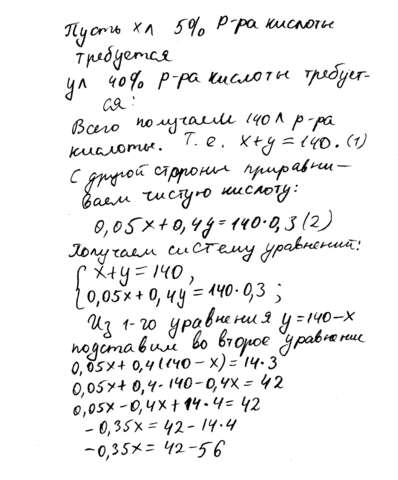 Пусть х л 5% р-ра кислоты
требуется
у л 40% р-ра кислоты требует-
ся:
Всего получаем 140 л р-ра
кислоты. Т.е. x+y=140. (1)
С другой стрроны приравни-
ваем чистую кислоту:
0,05x+0,4y=140·0,3 (2)
Получаем систему уравнений:
{x+y=140,
0,05x+0,4y=140·0,3;
Из 1-го уравнения y=140-x
подставим во второе уравнение
0,05x+0,4(140-x)=14·3
0,05x+0,4·140-0,4x=42
0,05x-0,4x+14·4=42
-0,35x=42-14·4
-0,35x=42-56